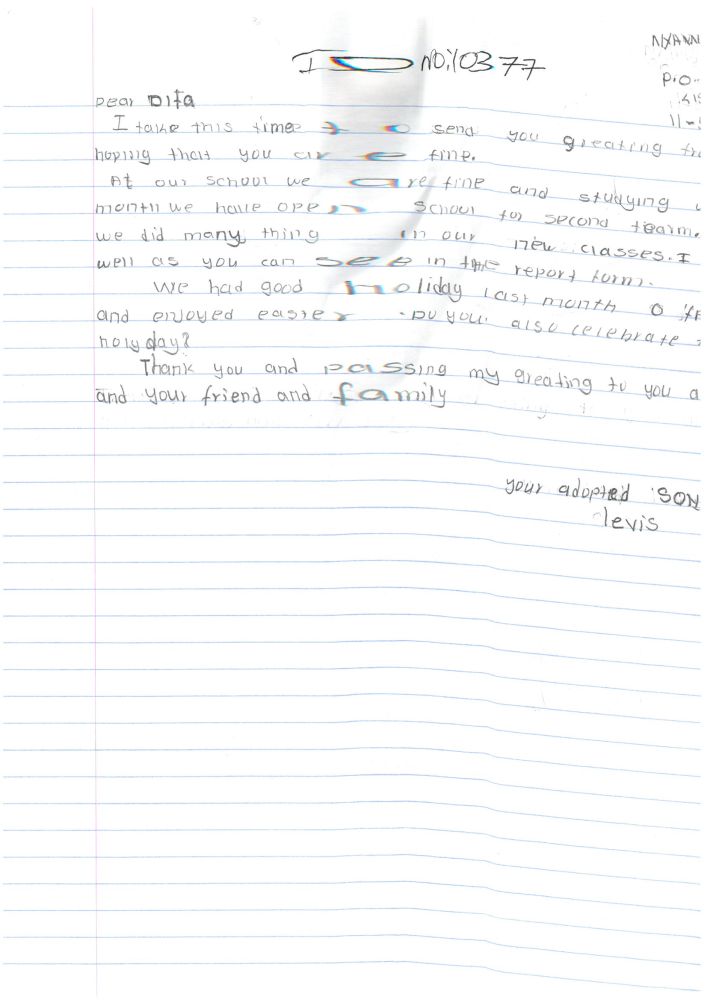 NYANN
ID NO:10377
P.O.
Dear Dita
I take this time to send you greating
hoping that you are fine.
At our school we are fine and studying
month we have open school for second tearm.
we did many thing in our new classes. I
well as you can see in the report form.
We had good holiday last month
and enjoyed easter. Do you also celebrate
holyday?
Thank you and passing my greating to you a
and your friend and family
your adopted SON
levis